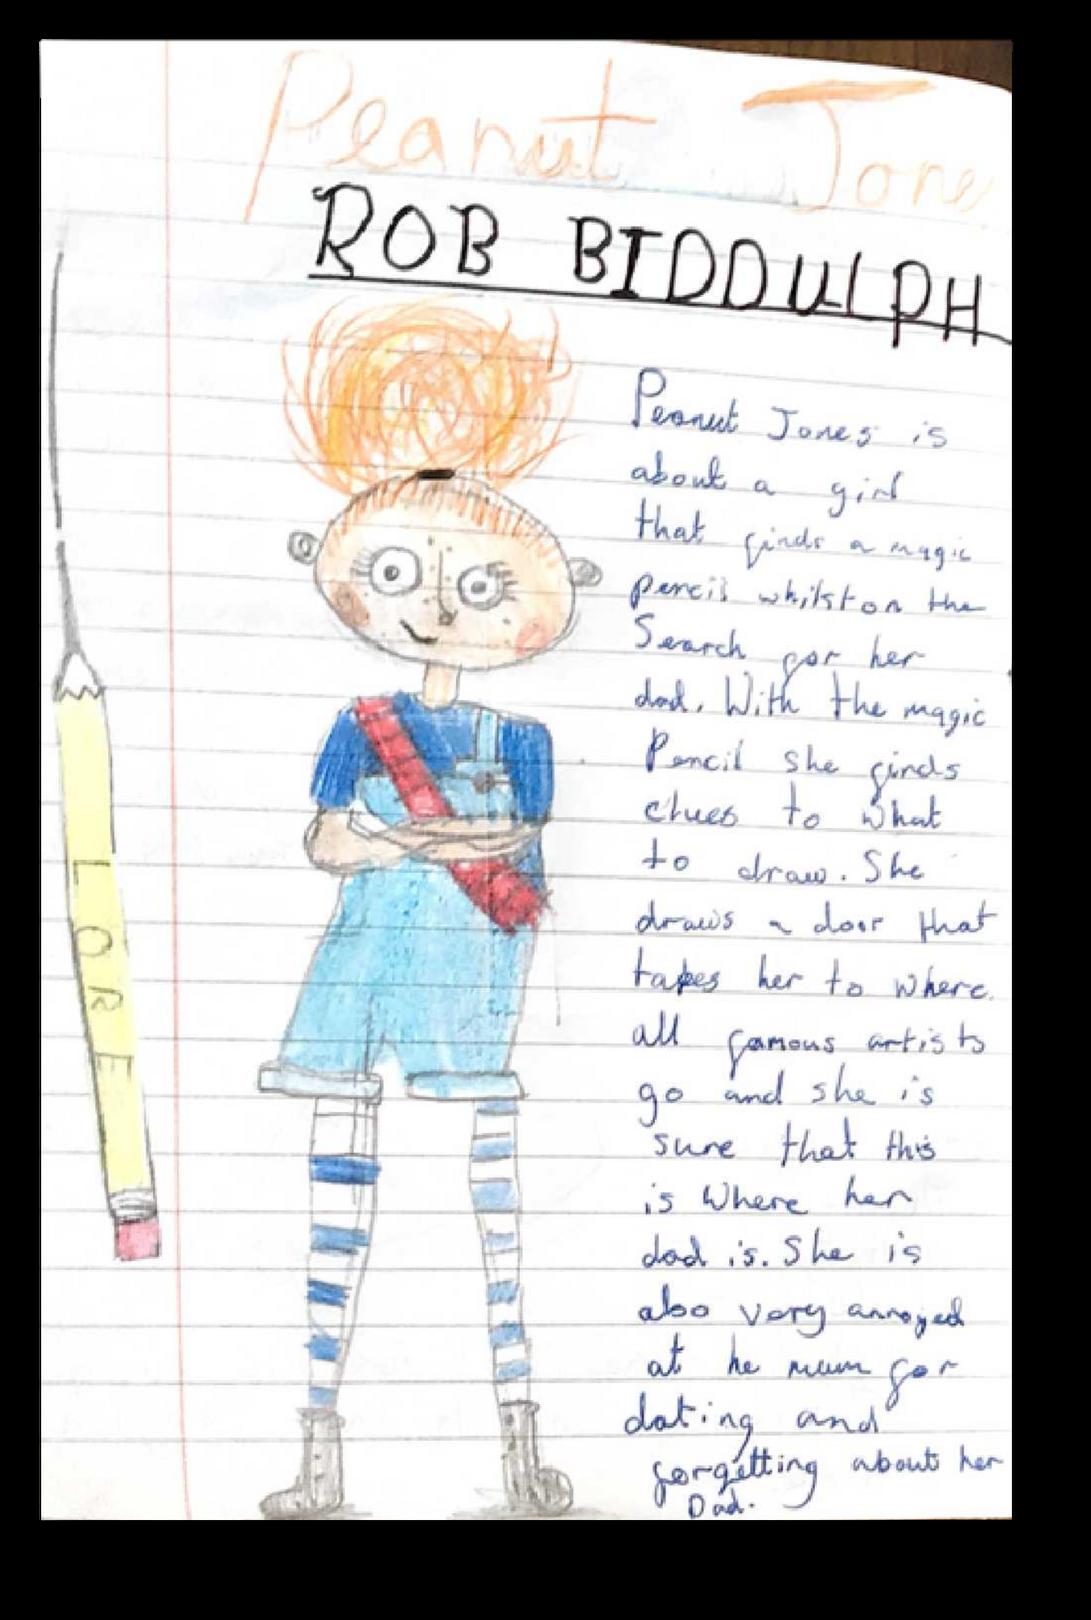 Peanut Jones
ROB BIDDULPH
Peanut Jones is
about a girl
that finds a magic
pencil whilst on the
Search for her
dad. With the magic
Pencil she finds
clues to what
to draw. She
draws a door that
takes her to where
all famous artists
go and she is
sure that this
is where her
dad is. She is
also very annoyed
at he mum for
dating and
forgetting about her
Dad.
LORE